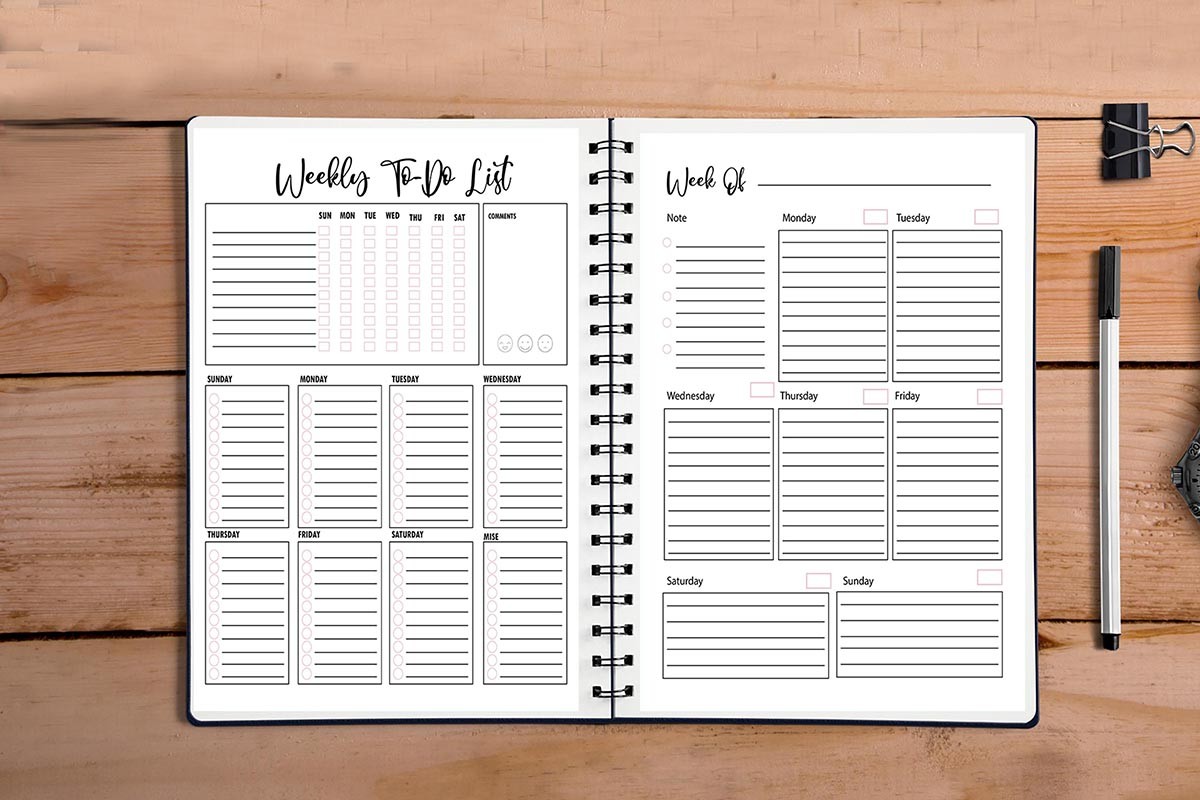 Weekly To-Do List
SUN MON TUE WED THU FRI SAT
COMMENTS
SUNDAY MONDAY TUESDAY WEDNESDAY
THURSDAY FRIDAY SATURDAY MISE
Week Of
Note Monday Tuesday
Wednesday Thursday Friday
Saturday Sunday